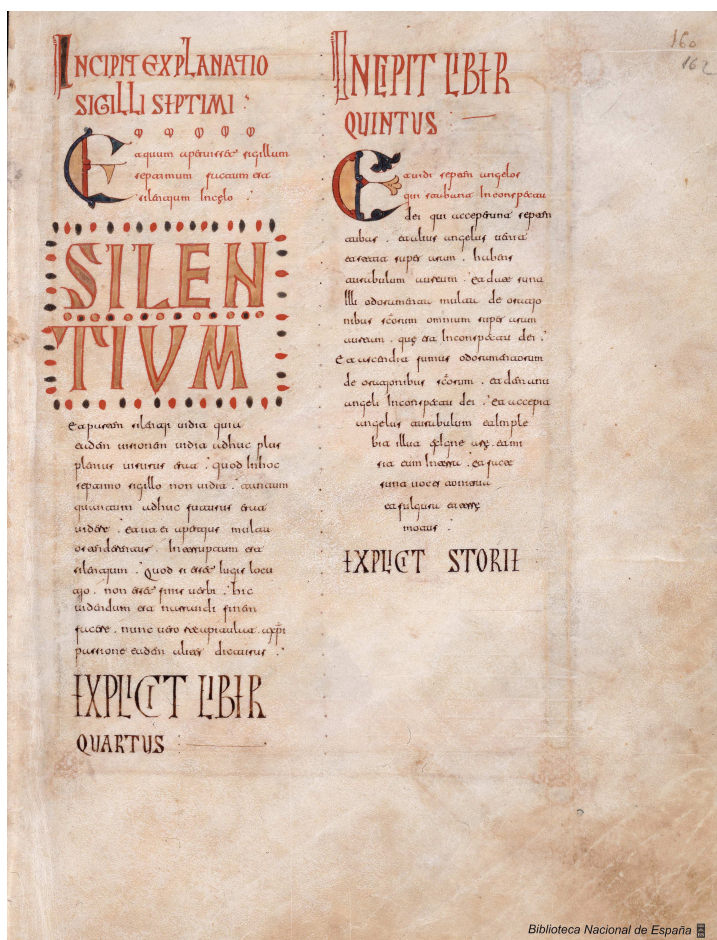 INCIPIT EXPLANATIO
SIGILLI SEPTIMI
Et quum aperuisset sigillum
septimum factum est
silentium In celo
SILEN
TIUM
silentii vidit quia
eandem visionem vidit adhuc plus
planius visurus erat. quod In hoc
septimo sigillo non vidit. tantum
quantum adhuc futurus erat
videre. et ut ei aperiret multa
Interruptum est
silentium. Quod si esset iugis locu
tio. non esset finis verbi. hic
videndum est narrandi finem
facere. nunc vero recapitulat a xpi
passione eadem aliter dicturus.
EXPLICIT LIBER
QUARTUS
INCIPIT LIBER
QUINTUS
Et vidi septem angelos
qui stabant In conspectu
dei qui acceperunt septem
tubas. et alius angelus venit
et stetit super aram. habens
turibulum aureum. et date sunt
Illi odoramenta multa de oratjo
nibus scorum omnium super aram
auream. que est In conspectu dei.
Et ascendit fumus odoramentorum
de oratjonibus scorum. et de manu
angeli In conspectu dei. et accepit
angelus turibulum et Imple
bit illut de igne
eum In et facte
sunt voces et tonitrua
et fulgura et terre
motus.
EXPLICIT STORIE
160
162
Biblioteca Nacional de España